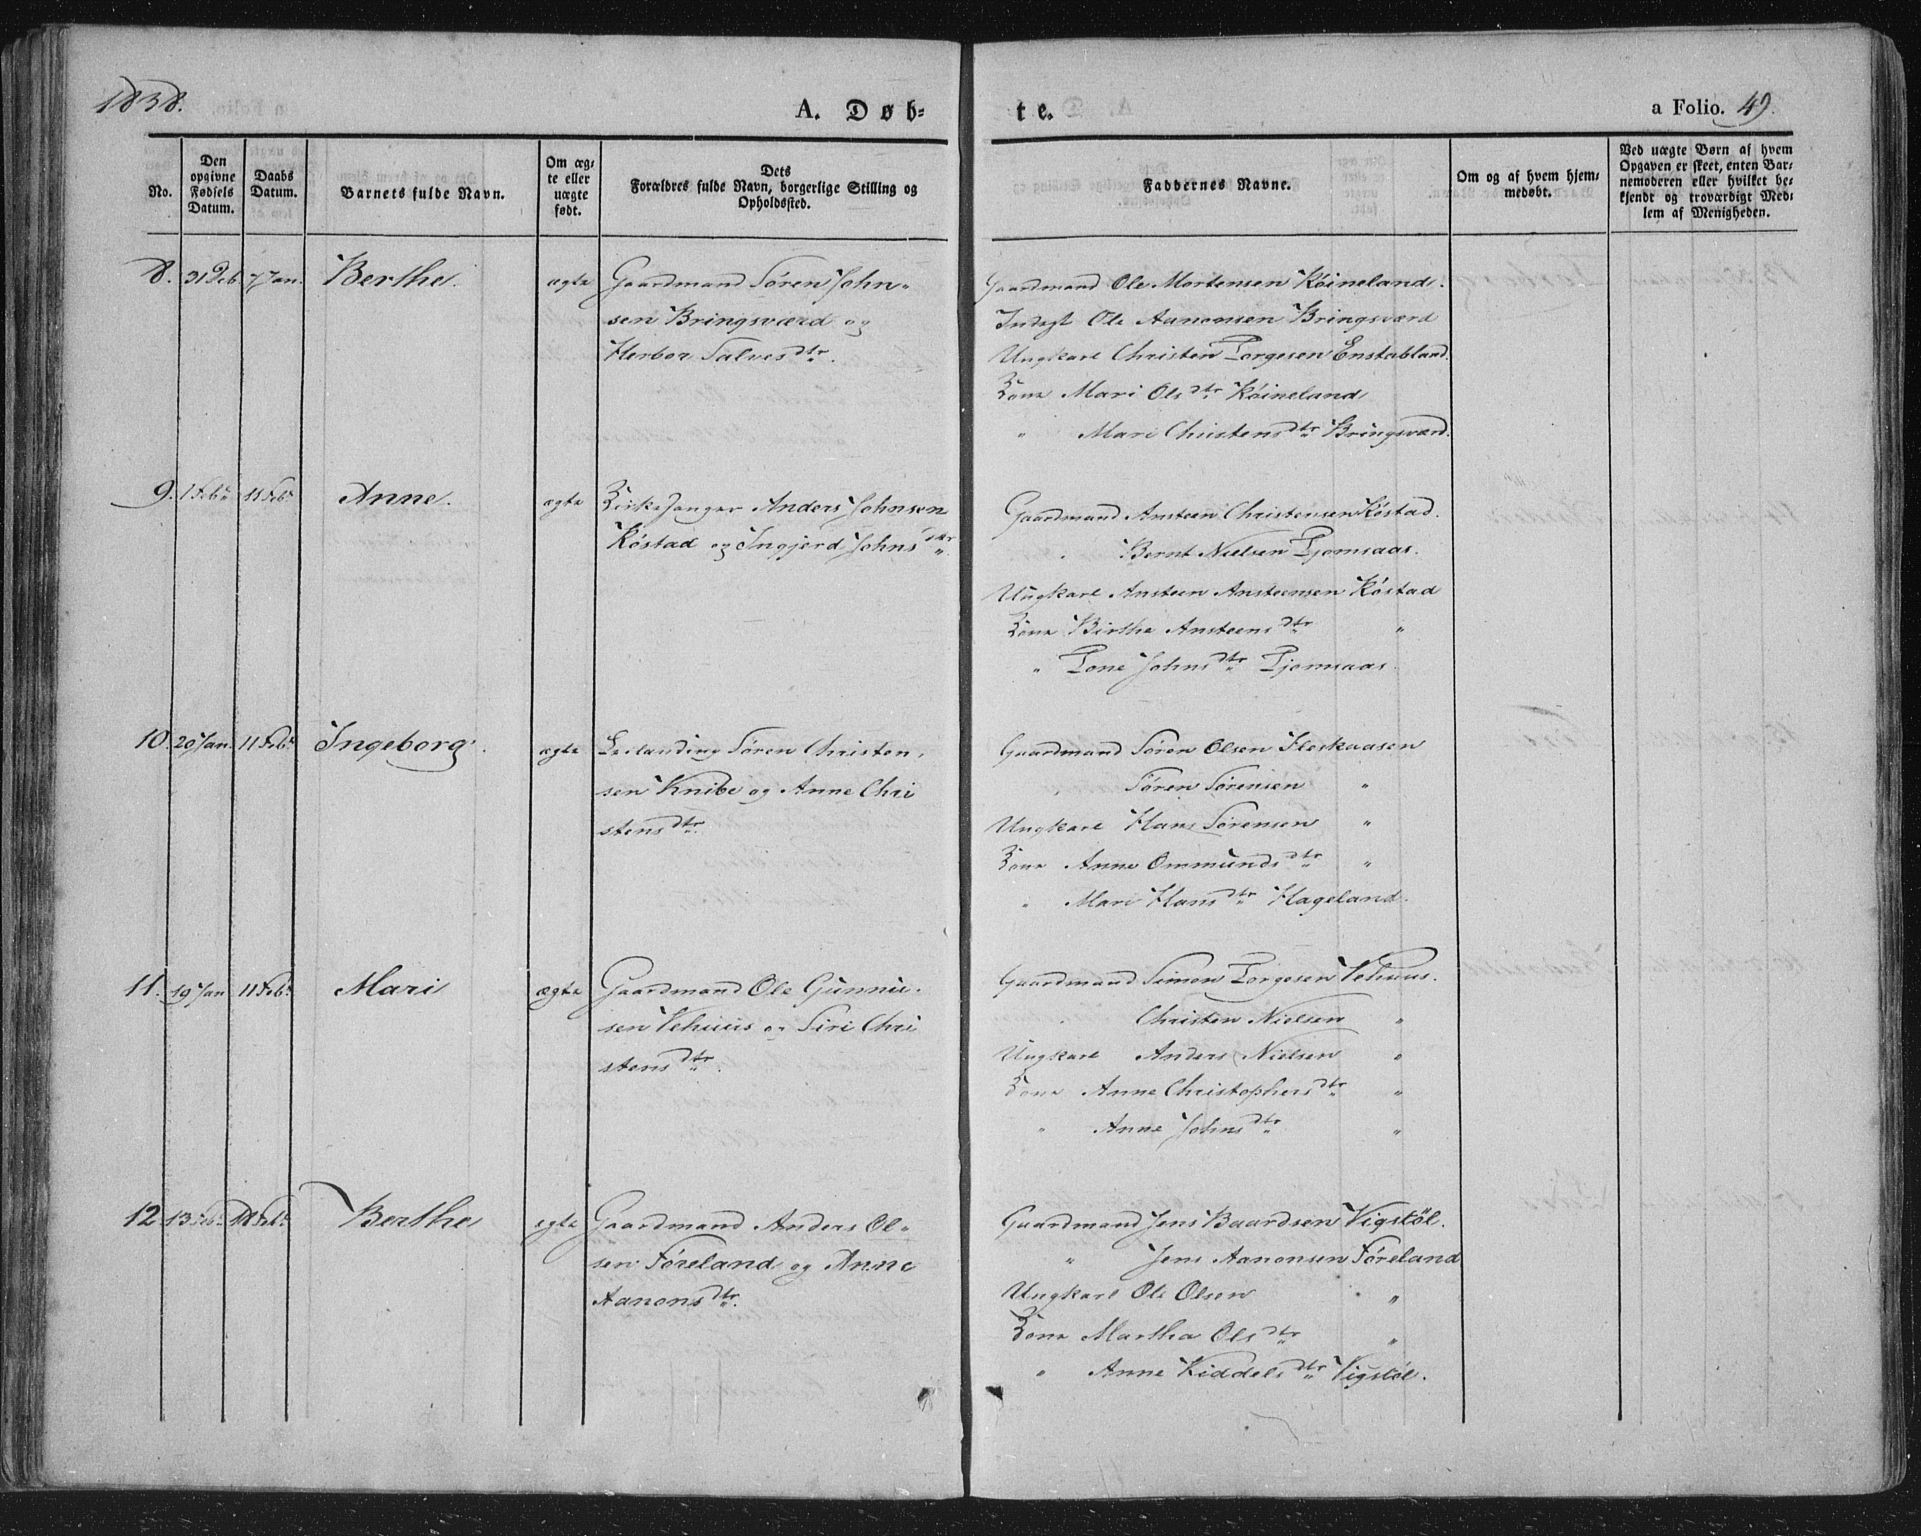 1838.
A. Døb-
te.
a Folio. 49.
No.
Den opgivne Fødsels Datum.
Daabs Datum.
Barnets fulde Navn.
Om ægte eller uægte født.
Dets Forældres fulde Navn, borgerlige Stilling og Opholdssted.
Faddernes Navne.
Om og af hvem hjemmedøbt.
Ved uægte Børn af hvem Opgaven er skeet, enten Barnemoderen eller hvilket bekjendt og troværdigt Medlem af Menigheden.
8. 31 Deb 7 Jan. Berthe. ægte Gaardmand Søren John-
sen Bringsværd og
Herbor Salvesdtr.
Gaardmand Ole Mortensen Køineland.
Inderst Ole Aanonsen Bringsværd
Ungkarl Christen Torgesen Enstabland.
Kone Mari Olsdtr Køineland
" Mari Christensdtr Bringsværd.
9. 1 Febr. 11 Febr. Anne. ægte Kirkesanger Anders Johnsen
Køstad og Ingjerd Johnsdtr
Gaardmand Ansteen Christensen Køstad.
" Bernt Nielsen Tjomsaas.
Ungkarl Ansteen Ansteensen Køstad
Kone Birthe Ansteensdtr "
" Tone Johnsdtr Tjomsaas.
10. 20 Jan. 11 Febr. Ingeborg. ægte Leilænding Søren Christen-
sen Knibe og Anne Chri
stensdtr.
Gaardmand Søren Olsen Fleskaasen
" Søren Sørensen "
Ungkarl Hans Sørensen "
Kone Anne Ommundsdtr "
" Mari Hansdtr Hageland.
11. 19 Jan 11 Febr. Mari ægte Gaardmand Ole Gunnu-
sen Vehuus og Siri Chri
stensdtr.
Gaardmand Simon Torgesen Vehuus.
" Christen Nielsen "
Ungkarl Anders Nielsen "
Kone Anne Christophersdtr "
" Anne Johnsdtr "
12. 13 Febr. 18 Febr. Berthe ægte Gaardmand Anders Ol-
sen Føreland og Anne
Aanonsdtr.
Gaardmand Jens Baardsen Vigstøl.
" Jens Aanonsen Føreland
Ungkarl Ole Olsen "
Kone Martha Olsdtr "
" Anne Kiddelsdtr Vigstøl.